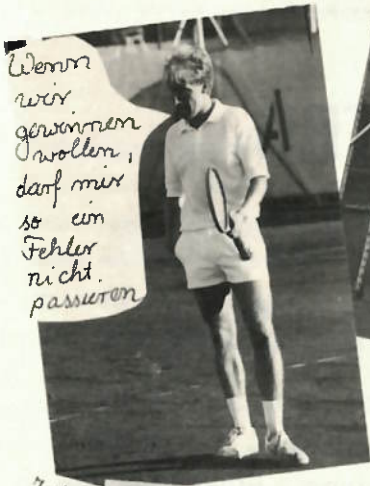 Wenn
wir
gewinnen
wollen,
darf mir
so ein
Fehler
nicht.
passieren